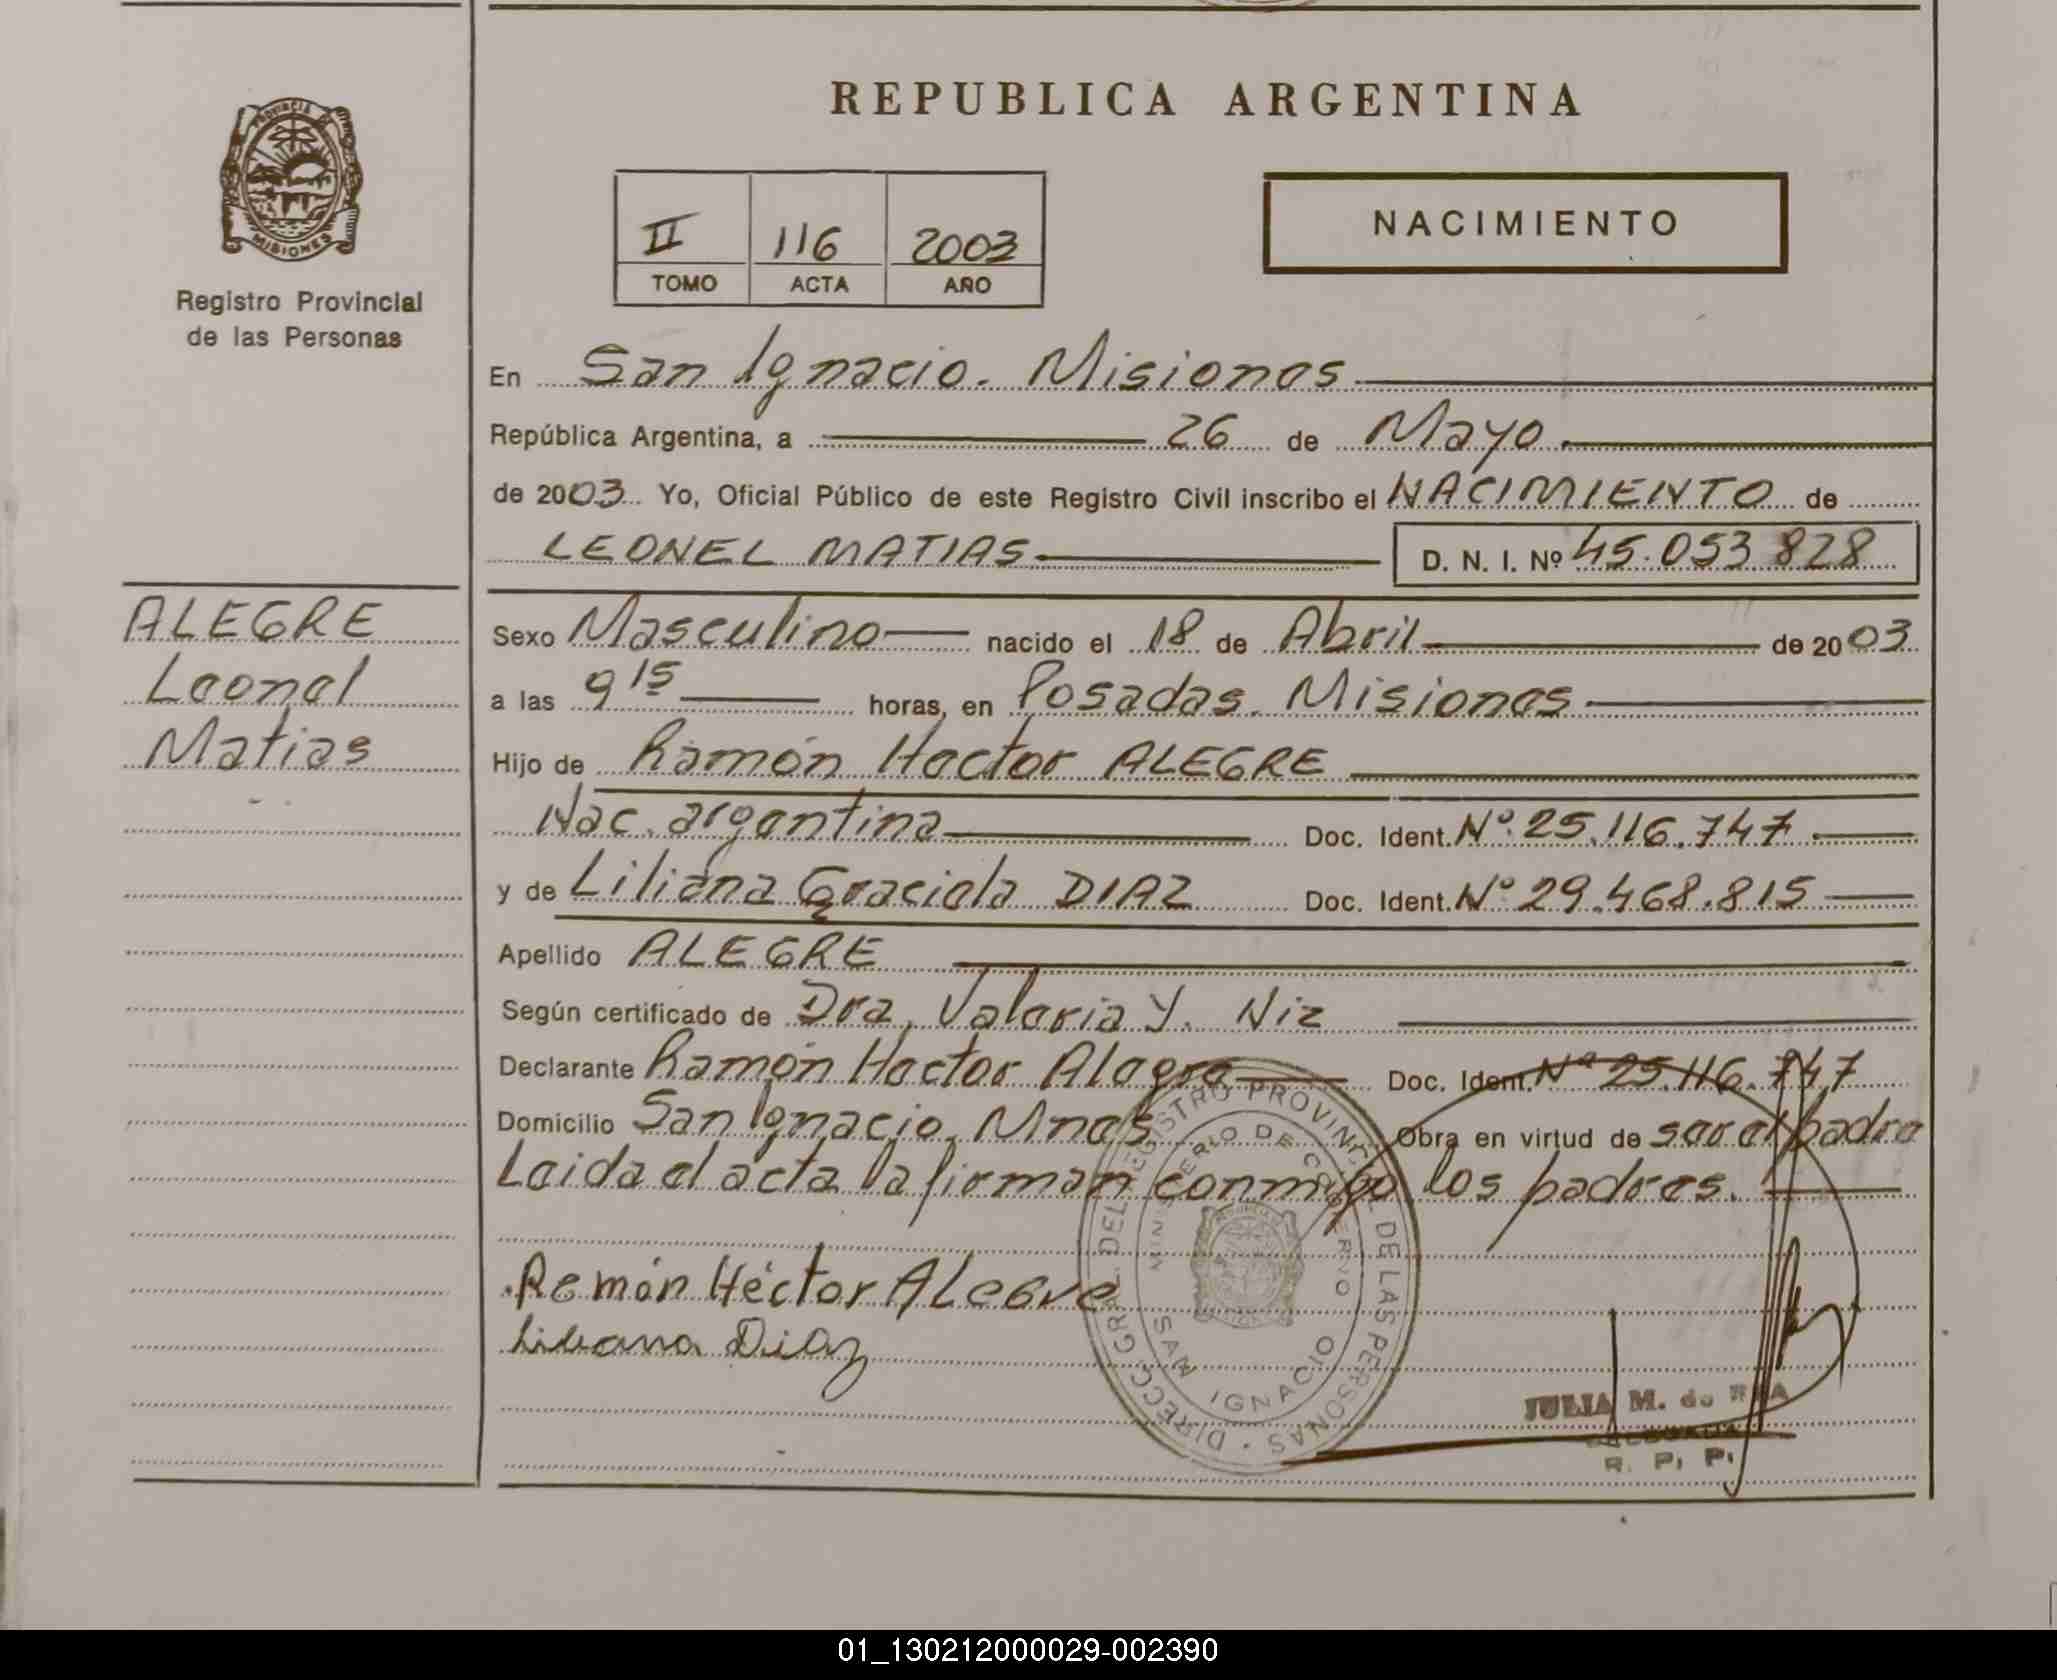 REPUBLICA ARGENTINA
PROVINCIA DE
MISIONES
Registro Provincial
de las Personas
II 116 2003
TOMO ACTA AÑO
NACIMIENTO
En San Ignacio. Misiones
República Argentina, a 26 de Mayo
de 2003 Yo, Oficial Público de este Registro Civil inscribo el NACIMIENTO de
LEONEL MATIAS D. N. I. Nº 45.053 828
ALEGRE
Leonel
Matias
Sexo Masculino nacido el 18 de Abril de 2003
a las 9 15 horas, en Posadas. Misiones
Hijo de Ramón Hector ALEGRE
Nac. argentina Doc. Ident. Nº 25.116.747
y de Liliana Graciela DIAZ Doc. Ident. Nº 29.468.815
Apellido ALEGRE
Según certificado de Dra. Valeria Y. Niz
Declarante Ramón Hector Alegre Doc. Ident. Nº 25.116.747
Domicilio San Ignacio. Mnes Obra en virtud de ser el padre
Leida el acta la firman conmigo los padres.
Ramón Héctor ALegre
Liliana Diaz
DIRECC. GRAL. DEL REGISTRO PROVINCIAL DE LAS PERSONAS
MINISTERIO DE GOBIERNO
SAN IGNACIO
JULIA M. de
R. P. P.
01_130212000029-002390